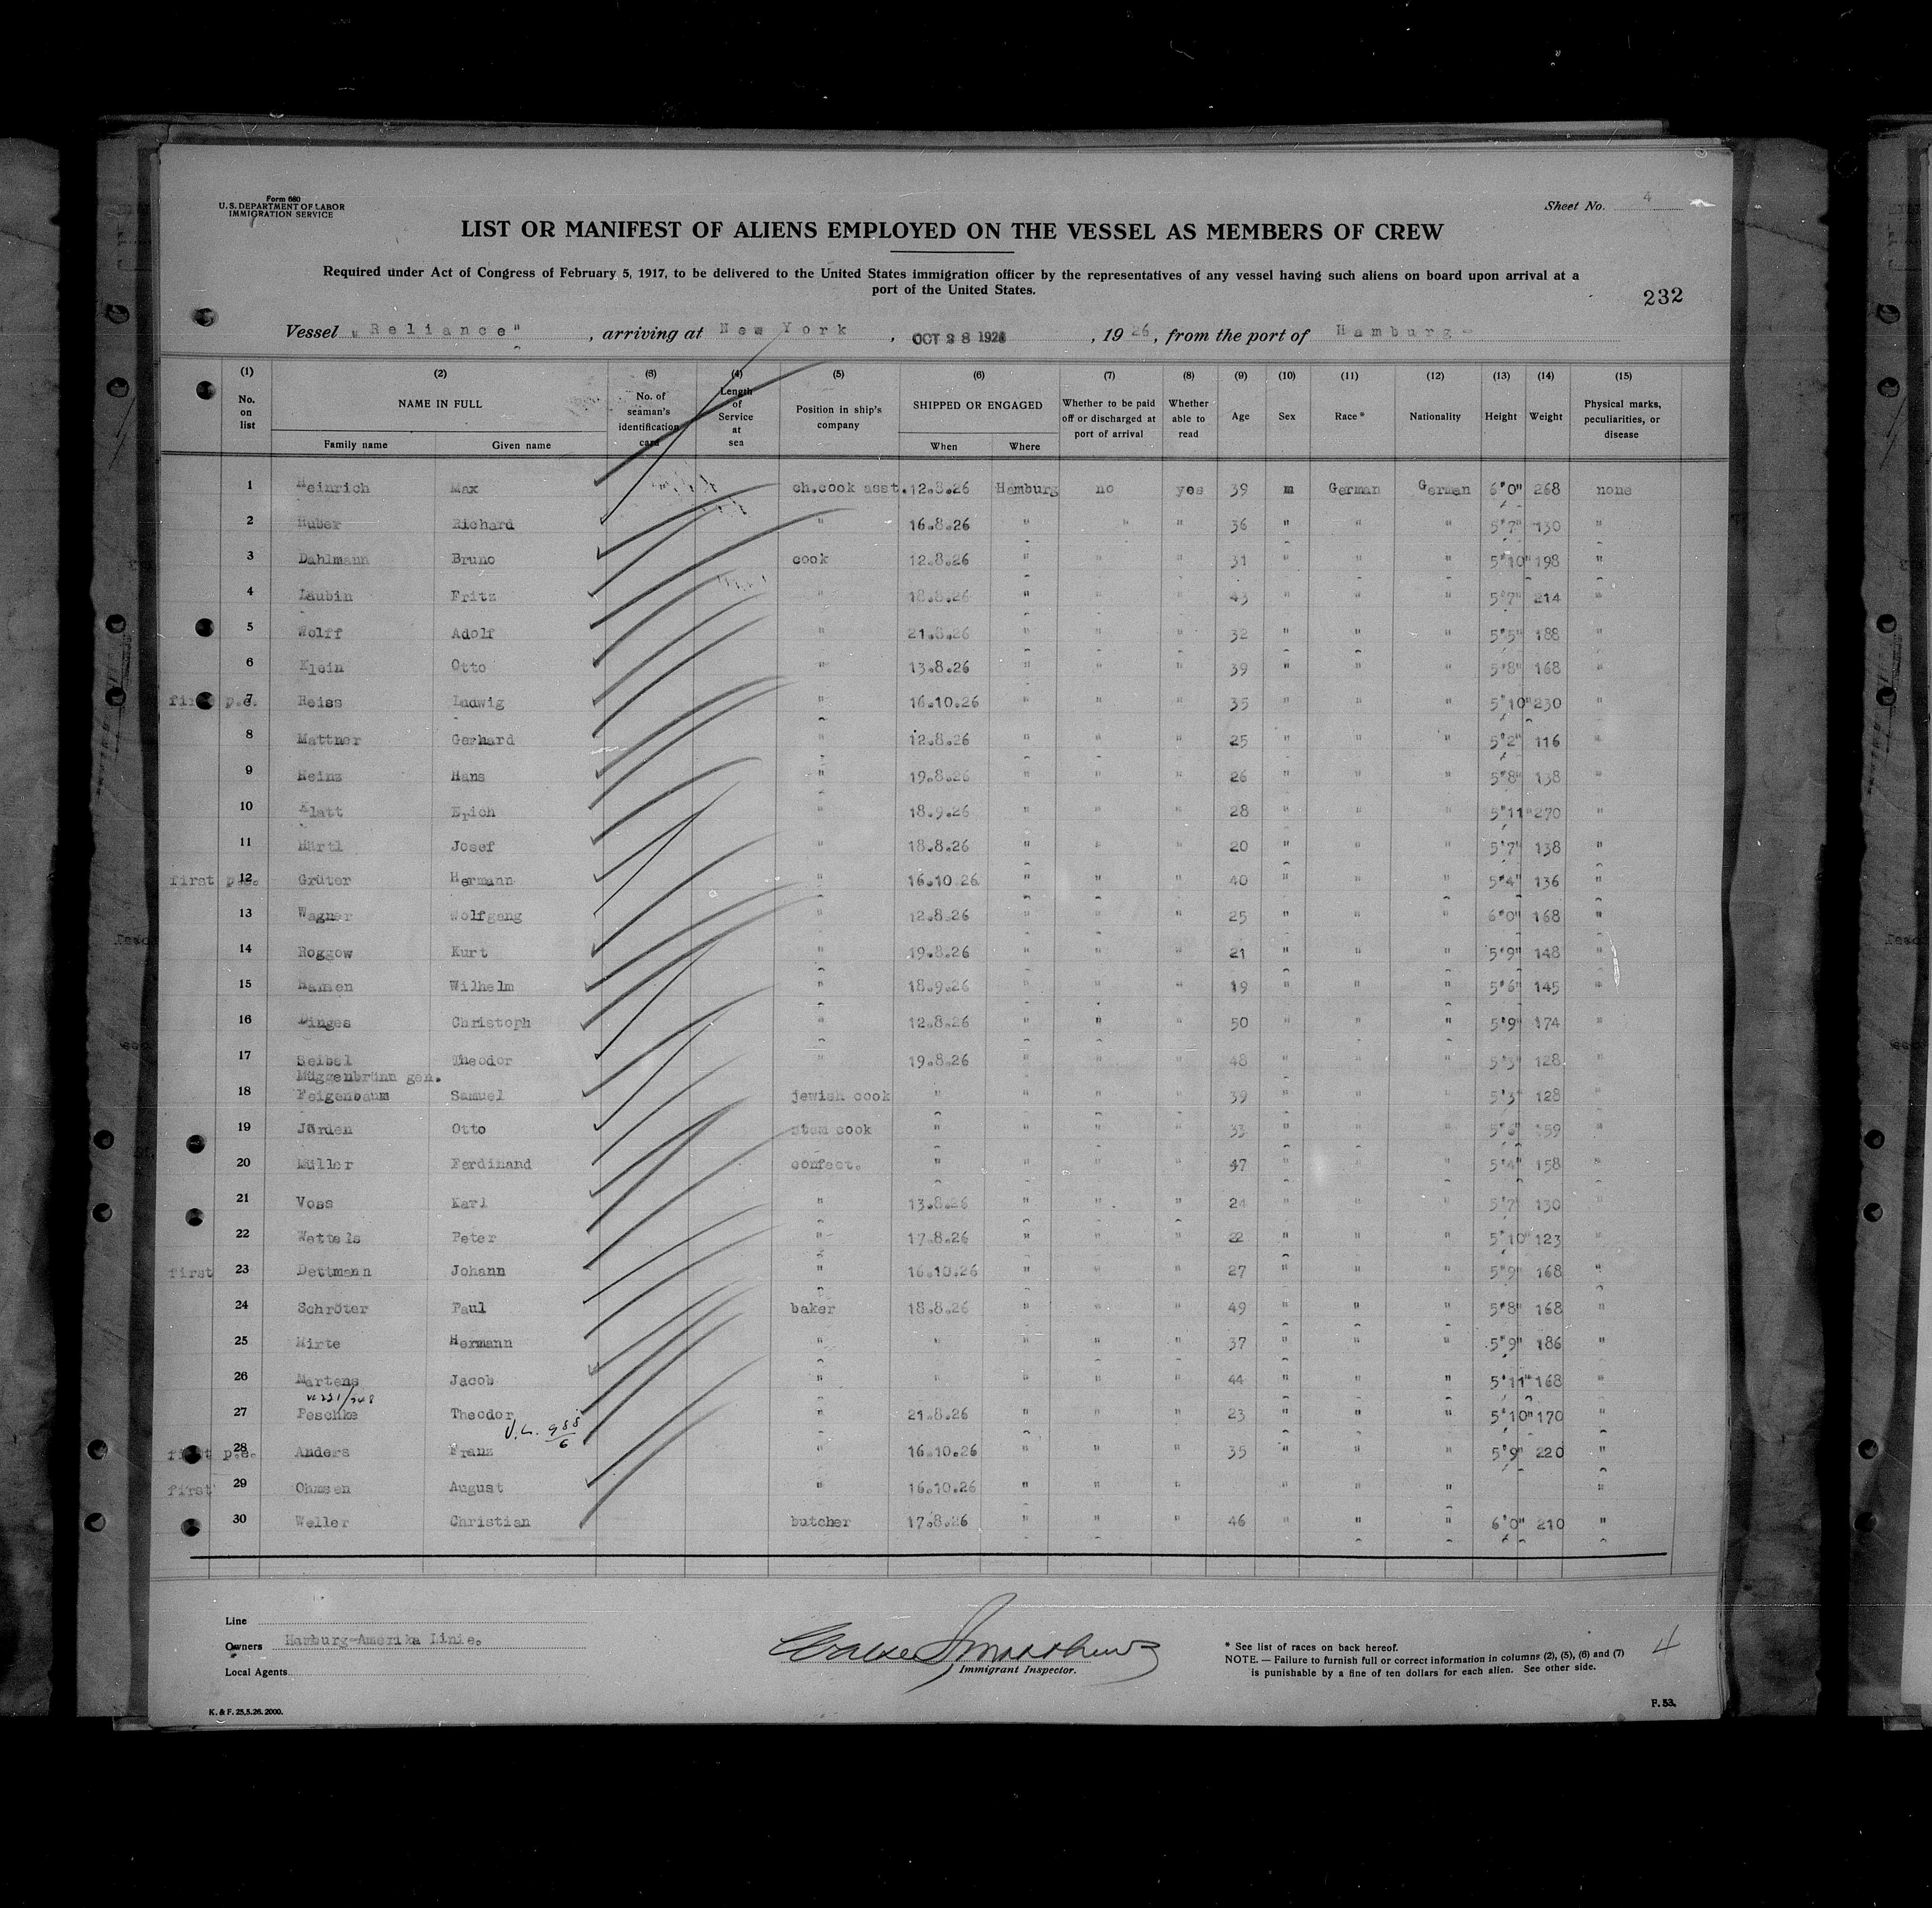 Form 680
U. S. DEPARTMENT OF LABOR
IMMIGRATION SERVICE
Sheet No. 4
LIST OR MANIFEST OF ALIENS EMPLOYED ON THE VESSEL AS MEMBERS OF CREW
Required under Act of Congress of February 5, 1917, to be delivered to the United States immigration officer by the representatives of any vessel having such aliens on board upon arrival at a
port of the United States.
232
Vessel „Reliance", arriving at New York, OCT 28 192, 1926, from the port of Hamburg-
(1) (2) (3) (4) (5) (6) (7) (8) (9) (10) (11) (12) (13) (14) (15)
No. on list NAME IN FULL No. of seaman's identification card Length of Service at sea Position in ship's company SHIPPED OR ENGAGED Whether to be paid off or discharged at port of arrival Whether able to read Age Sex Race* Nationality Height Weight Physical marks, peculiarities, or disease
Family name Given name When Where
1 Heinrich Max ch.cook asst. 12.8.26 Hamburg no yes 39 m German German 6'0" 268 none
2 Huber Richard " 16.8.26 " " " 36 " " " 5'7" 130 "
3 Dahlmann Bruno cook 12.8.26 " " " 31 " " " 5'10" 198 "
4 Laubin Fritz " 18.8.26 " " " 43 " " " 5'7" 214 "
5 Wolff Adolf " 21.8.26 " " " 32 " " " 5'5" 188 "
6 Klein Otto " 13.8.26 " " " 39 " " " 5'8" 168 "
first p.e. 7 Reiss Ludwig " 16.10.26 " " " 35 " " " 5'10" 230 "
8 Mattner Gerhard " 12.8.26 " " " 25 " " " 5'2" 116 "
9 Heinz Hans " 19.8.26 " " " 26 " " " 5'8" 138 "
10 Erich " 18.9.26 " " " 28 " " " 5'11" 270 "
11 Härtl Josef " 18.8.26 " " " 20 " " " 5'7" 138 "
first p.e. 12 Grüter Hermann " 16.10.26 " " " 40 " " " 5'4" 136 "
13 Wagner Wolfgang " 12.8.26 " " " 25 " " " 6'0" 168 "
14 Roggow Kurt " 19.8.26 " " " 21 " " " 5'9" 148 "
15 Wilhelm " 18.9.26 " " " 19 " " " 5'6" 145 "
16 Dinges Christoph " 12.8.26 " " " 50 " " " 5'9" 174 "
17 Seibel Theodor " 19.8.26 " " " 48 " " " 5'3" 128 "
Müggenbrünn gen.
18 Feigenbaum Samuel jewish cook " " " " 39 " " " 5'3" 128 "
19 Jörden Otto cook " " " " 33 " " " 159 "
20 Müller Ferdinand confect. " " " " 47 " " " 5'4" 158 "
21 Voss Karl " 13.8.26 " " " 24 " " " 5'7" 130 "
22 Wettels Peter " 17.8.26 " " " 22 " " " 5'10" 123 "
first 23 Dettmann Johann " 16.10.26 " " " 27 " " " 5'9" 168 "
24 Schröter Paul baker 18.8.26 " " " 49 " " " 5'8" 168 "
25 Mirte Hermann " " " " " 37 " " " 5'9" 186 "
26 Martens Jacob " " " " " 44 " " " 5'11" 168 "
27 Peschke Theodor " 21.8.26 " " " 23 " " " 5'10" 170 "
first p.e. 28 Anders Franz " 16.10.26 " " " 35 " " " 5'9" 220 "
first 29 Ohmsen August " 16.10.26 " " " " " " "
30 Weller Christian butcher 17.8.26 " " " 46 " " " 6'0" 210 "
Line
Owners Hamburg-Amerika Linie.
Local Agents
Immigrant Inspector.
* See list of races on back hereof.
NOTE. — Failure to furnish full or correct information in columns (2), (5), (6) and (7)
is punishable by a fine of ten dollars for each alien. See other side.
4
K. & F. 25.5.26. 2000.
F. 53.